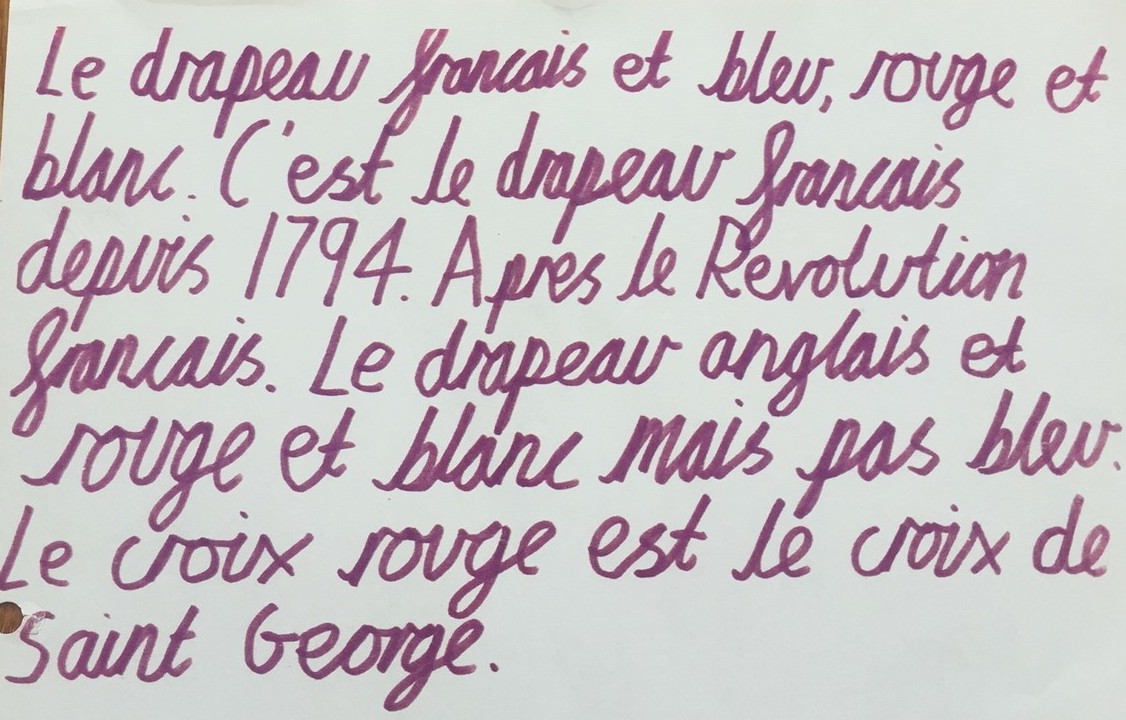 Le drapeau francais et bleu, rouge et
blanc. C'est le drapeau francais
depuis 1794. Apres le Revolution
francais. Le drapeau anglais et
rouge et blanc mais pas bleu.
Le croix rouge est le croix de
Saint George.